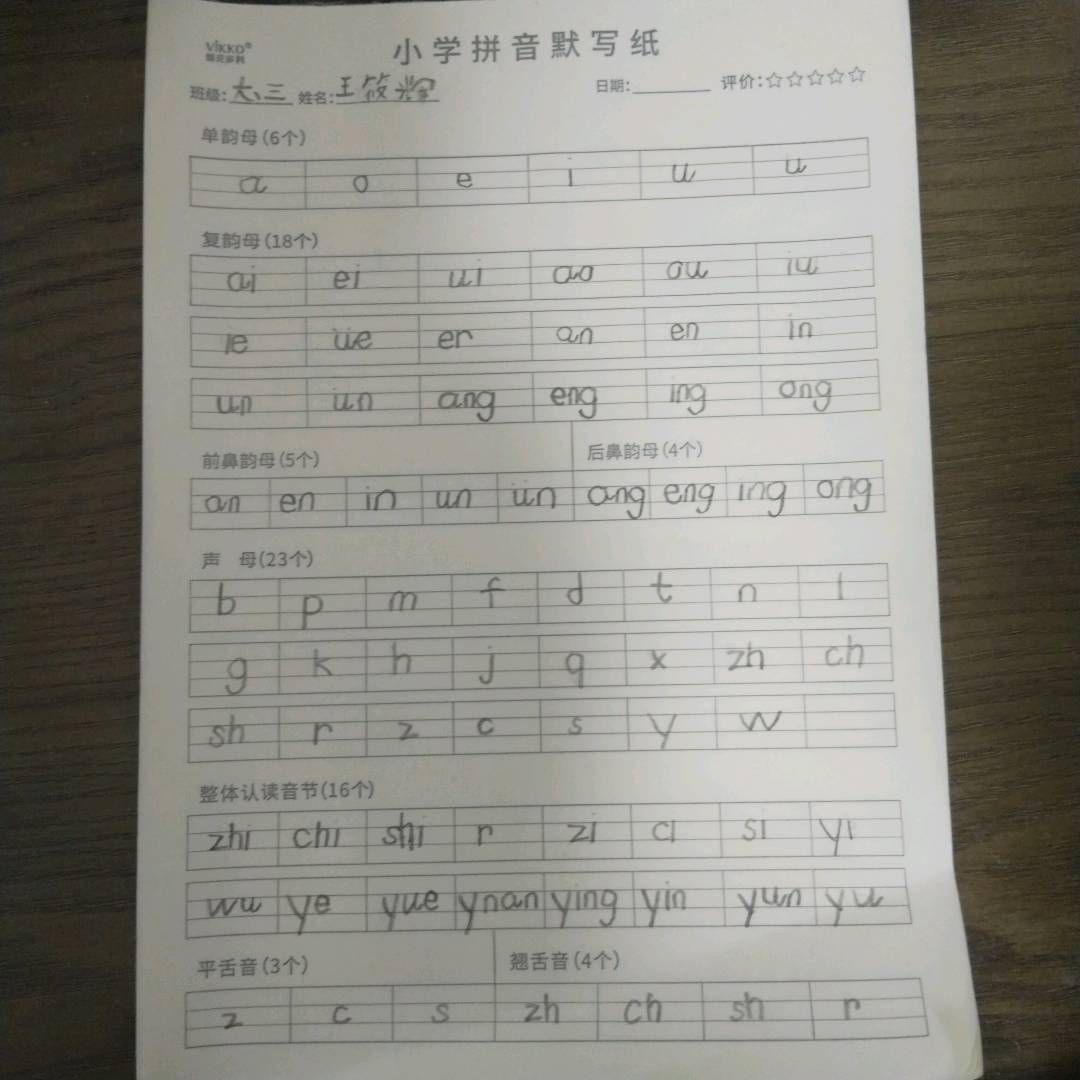 ViKKO®
小学拼音默写纸
班级: 大三 姓名: 王筱 日期: 评价:☆☆☆☆☆
单韵母(6个)
a o e i u u
复韵母(18个)
ai ei ui ao ou iu
ie üe er an en in
un ün ang eng ing ong
前鼻韵母(5个) 后鼻韵母(4个)
an en in un ün ang eng ing ong
声 母(23个)
b p m f d t n l
g k h j q x zh ch
sh r z c s y w
整体认读音节(16个)
zhi chi shi r zi ci si yi
wu ye yue ynan ying yin yun yu
平舌音(3个) 翘舌音(4个)
z c s zh ch sh r